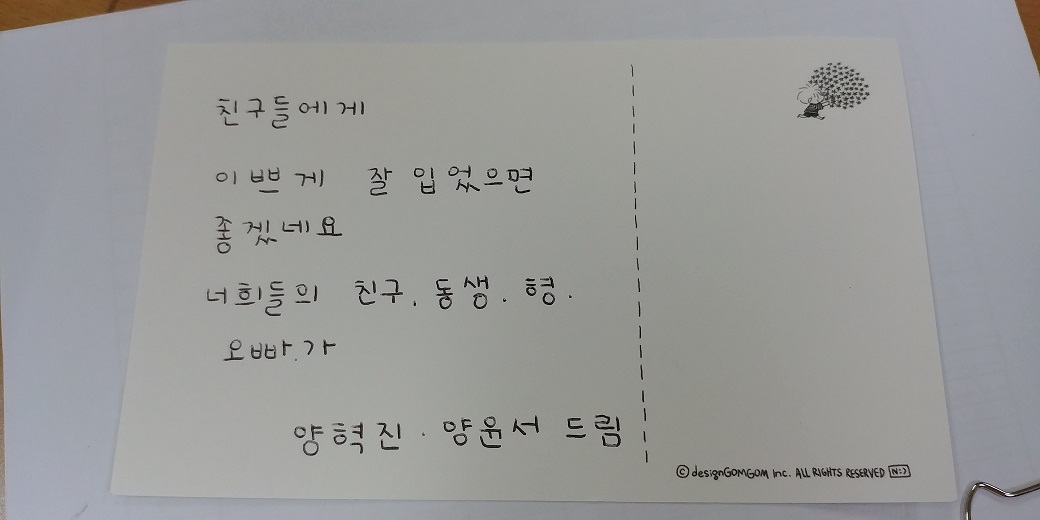 친구들에게
이쁘게 잘 입었으면
좋겠네요
너희들의 친구. 동생. 형.
오빠.가
양혁진 · 양윤서 드림
©designGOMGOM Inc. ALL RIGHTS RESERVED N:)